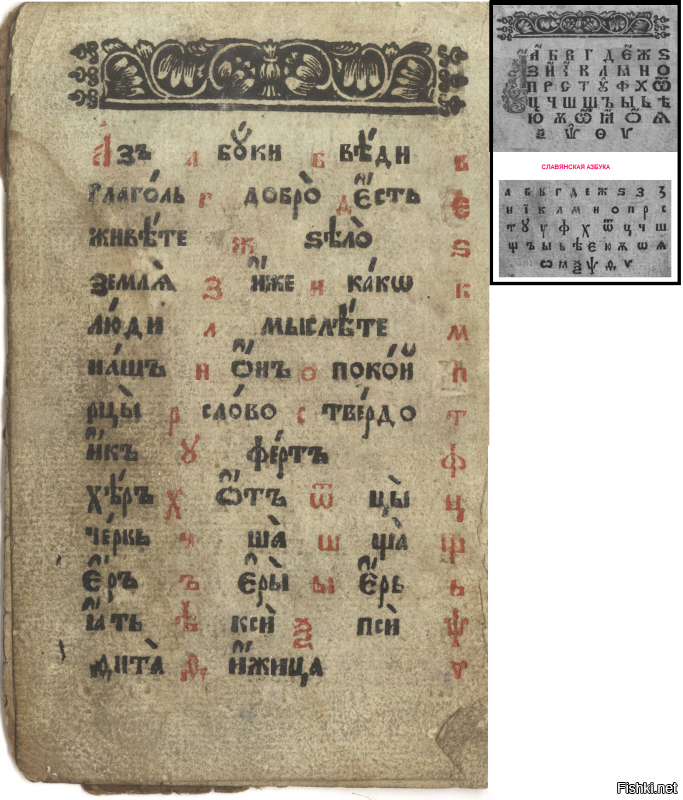 А҆́зъ а бꙋ́ки б вѣ́ди в
глаго́ль г добро̀ д є҆́сть є
живѣ́те ж ѕѣло̀ ѕ
землѧ̀ з и҆́же и ка́кѡ к
лю́ди л мыслѣ́те м
на́шъ н ѻ҆́нъ о поко́й п
рцы̀ р сло́во с тве́рдо т
и҆́къ ꙋ фе́ртъ ф
хѣ́ръ х ѿтъ ѿ цы̀ ц
че́рвь ч ша̀ ш ща̀ щ
є҆́ръ ъ є҆ры̀ ы є҆́рь ь
ꙗ҆́ть ѣ ксѝ ѯ псѝ ѱ
ѳита̀ ѳ и҆́жица ѵ
А Б В Г Д Е Ж Ѕ
З И І К Л М Н О
П Р С Т Ꙋ Ф Х Ѿ
Ц Ч Ш Щ Ъ Ы Ь Ѣ
Ю Ѫ Ѿ Ꙗ Ѡ Ѧ
Ѯ Ѱ Ѳ Ѵ
СЛАВЯНСКАЯ АЗБУКА
а б в г д е ж ѕ з ꙁ
и ї к л м н о п р с
т ꙋ у ф х ѿ ц ч ш
щ ъ ы ь ѣ є ю ѫ ѡ ѧ
ѯ ѱ ѳ ѵ
Fishki.net